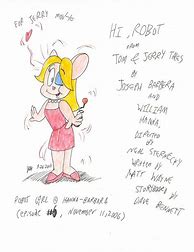 FOR JERRY MOUSE
HI, ROBOT
FROM
TOM & JERRY TALES
BY
JOSEPH BARBERA
AND
WILLIAM
HANNA
DIRECTED
BY
NEAL STERNECKY
WRITTEN
BY
MATT WAYNE
STORYBOARD
BY
DAVE BENNETT
GIRL @ HANNA-BARBERA
(EPISODE NOVEMBER 11, 2006)